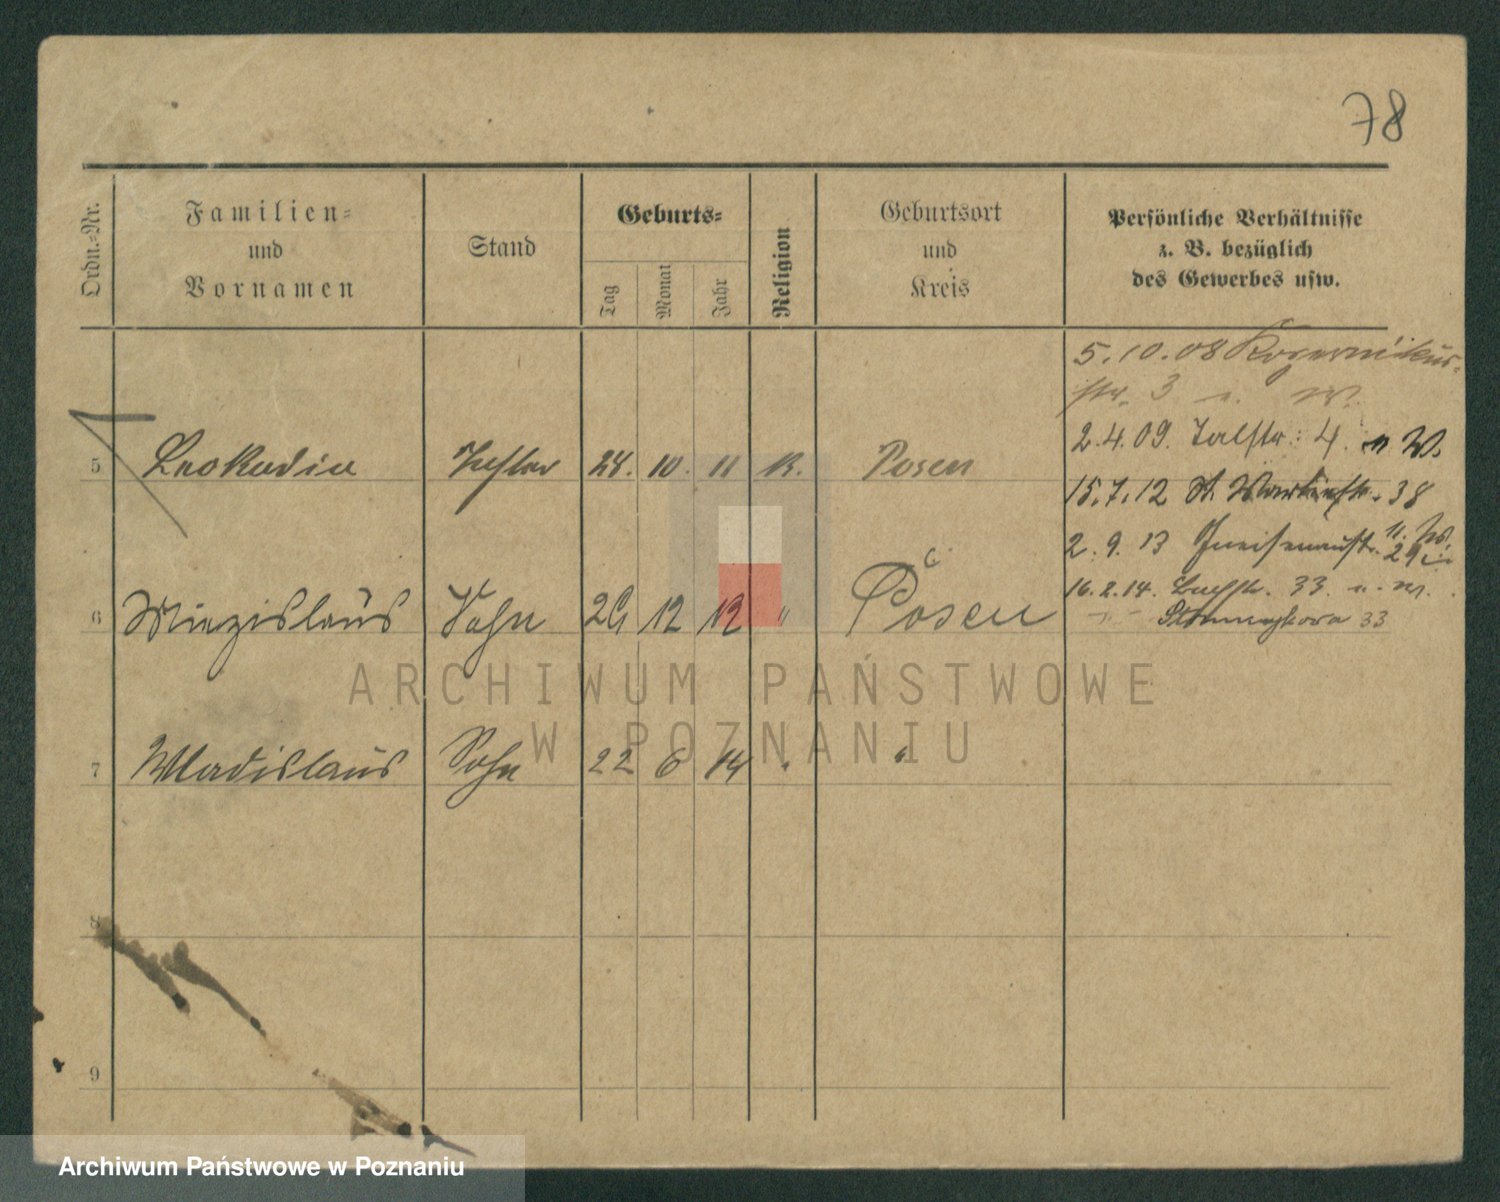 78
Ordn.-Nr.
Familien-
und
Vornamen
Stand
Geburts-
Tag
Monat
Jahr
Religion
Geburtsort
und
Kreis
Persönliche Verhältnisse
z. B. bezüglich
des Gewerbes usw.
5.10.08 Kopernikus-
str. 3 u. W.
2.4.09. Talstr. 4. u W.
5 Leokadia Tochter 24. 10. 11 K. Posen
15.7.12 St. Martinstr. 38
2.9.13 Gneisenaustr. 29
16.2.14. 33. u. W.
6 Miezislaus Sohn 12 12 " Posen
33
ARCHIWUM PAŃSTWOWE
W POZNANIU
7 Wladislaus Sohn 22 6 14 " "
8
9
Archiwum Państwowe w Poznaniu